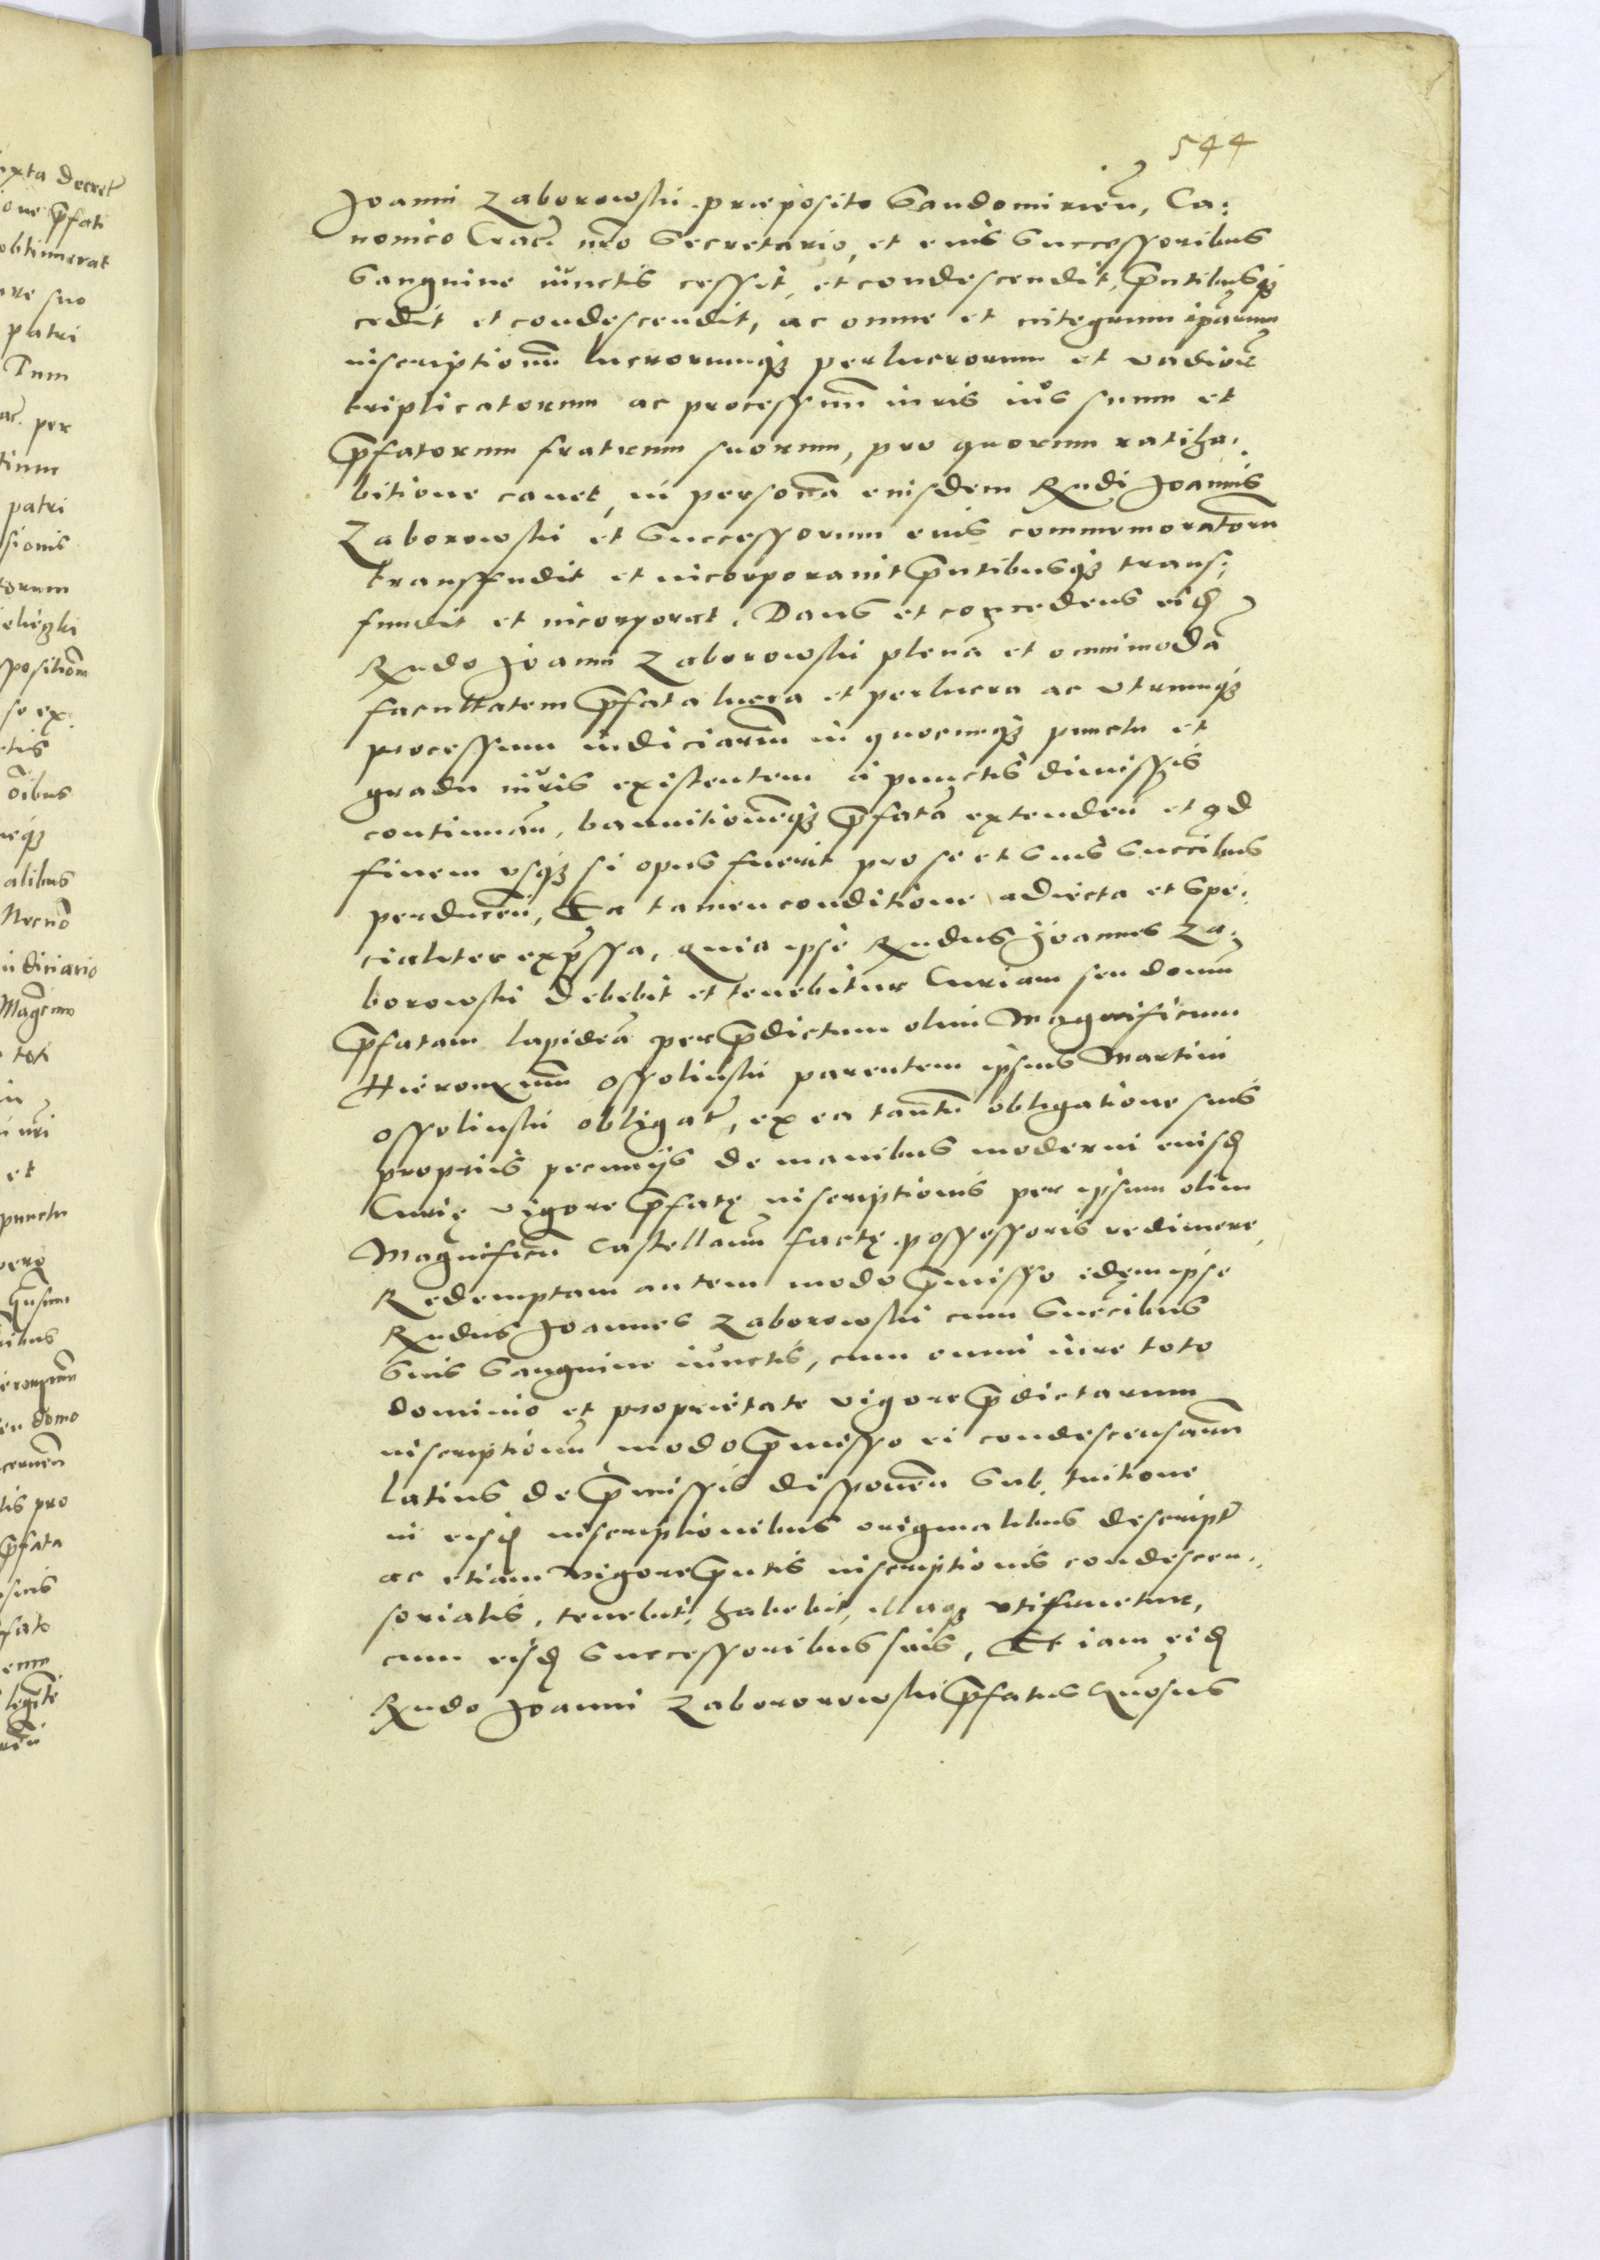 544
Joanni Zaborowski præposito Sandomirien̄, Ca:
nonico Crac̄. nr̄o Secretario, et eius Successoribus
Sanguine iunctis cessit, et condescendit, p̄ntibusq3
cedit et condescendit, ac omne et integrum ip̄arum
inscriptionū lucrorumq3 perlucrorum et vadior̄
triplicatorum ac processum iuris ius suum et
p̄fatorum fratrum suorum, pro quorum ratiha,
bitione cauet, in personā eiusdem Rndi Joannis
Zaborowski et Successorum eius commemoratorū
transfudit et incorporauit p̄ntibusq3 trans,
fundit et incorporat. Dans et concedens eid̄
Rndo Joanni Zaborowski plenā et omnimodā
facultatem p̄fata lucra et perlucra ac utrumq3
processum iudiciariū in quocunq3 punctu et
gradu iuris existentem a punctis dimissis
continuan̄, bannitionēq3 p̄fatā extenden̄ et ad
finem usq3 si opus fuerit pro se et suis Succ̄ibus
perducen̄, Ea tamen conditione adiecta et spe,
cialiter exp̄ssa, quia ipse Rndus Joannes Za,
borowski debebit et tenebitur Curiam seu domū
p̄fatam lapideā per p̄dictum olim Magnificum
Hieronymū Ossolinski parentem ipsius Martini
Ossolinski obligat̄, ex ea tantū obligatione suis
proprijs pecunijs de manibus moderni eiusd̄
Curię vigore p̄fatę inscriptionis per ipsum olim
Magnificū Castellanū factę possessoris redimere,
Redemptam autem modo p̄misso idem ipse
Rndus Joannes Zaborowski cum Succ̄ibus
suis Sanguine iunctis, cum omni iure toto
dominio et proprietate vigore p̄dictarum
inscriptionū modo p̄misso ei condescensarū
latius de p̄missis disponen̄ sub tuitione
in eisd̄ inscriptionibus originalibus descript̄
ac etiam vigore p̄ntis inscriptionis condescen,
sorialis, tenebit, habebit, illaq3 utifruetur,
cum eisd̄ Successoribus suis, Et iam eid̄
Rndo Joanni Zabororowski p̄fatus Gn̄osus